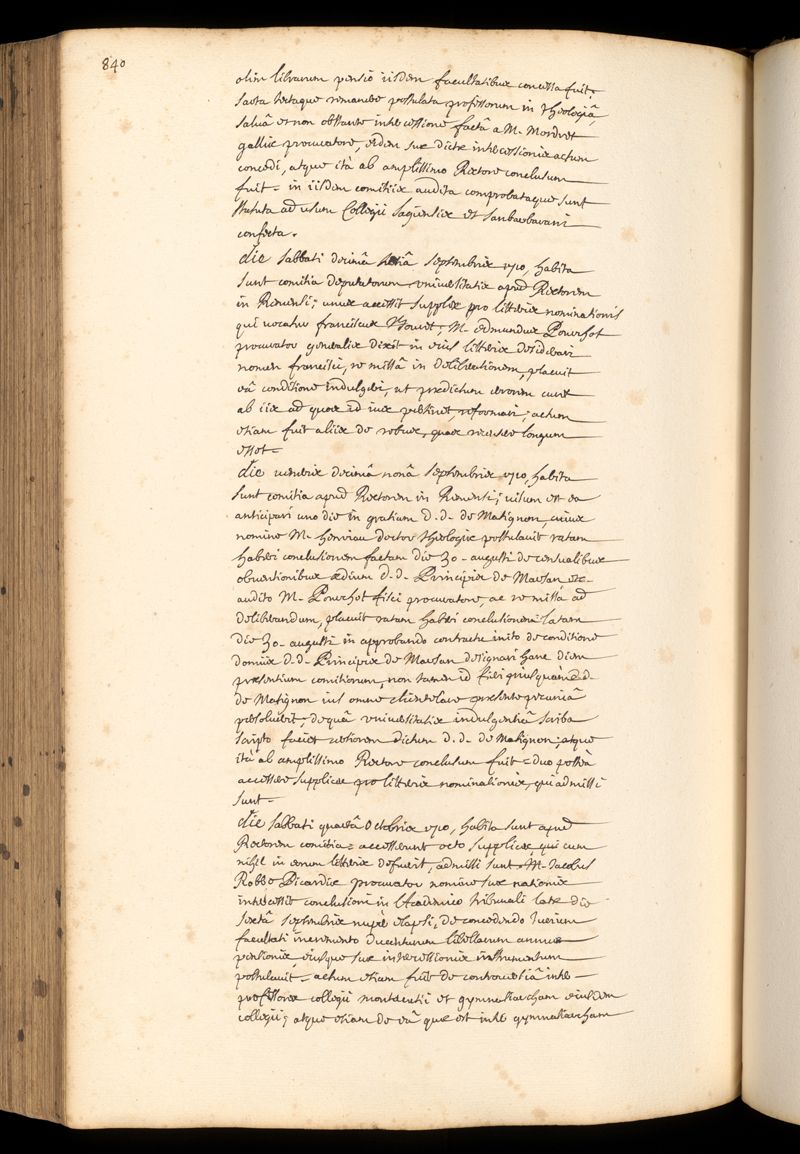 840
olim librarum pensio iisdem facultatibus concessa fuit,
sarta tectaque remanere postulata professorum in theologiâ
salvâ et non obstante intercessione factâ a M. Mordret
galliæ procuratore, eidem suæ dictæ intercessionis actum
concedi, atque ità ab amplissimo Rectore conclusum
fuit = in iisdem comitiis audita comprobataque sunt
statuta ad usum Collegii Sagiensis et sanbarbarani
confecta.
die sabbati decimâ tertiâ septembris 1710, habita
sunt comitia deputatorum universitatis apud Rectorem
in Remensi; unus accessit supplex pro litteris nominationis
qui vocatur franciscus M. Edmundus Pourchot
procurator generalis dixit in eius litteris desiderari
nomen francisci, re missâ in deliberationem, placuit
eâ conditione indulgeri, ut prædictum errorem curet
ab iis ad quos id ius pertinet, reformari; actum
etiam fuit aliis de rebus, quas recensere longum
esset =
die veneris decimâ nonâ septembris 1710, habita
sunt comitia apud Rectorem in Remensi; visum est ea
anticipari uno die in gratiam d.d. de Matignon, cuius
nomine M. henriau doctor theologiæ postulavit ratam
haberi conclusionem factam die 30. augusti de censualibus
obventionibus ædium d.d. Principis de Marsan etc.
audito M. Pourchot fisci procuratore, ac re missa ad
deliberandum, placuit ratam haberi conclusionem latam
die 30. augusti in approbando contractu inito de conditione
domus d.d. Principis de Marsan designari hanc diem
præsentium comitiorum, non tamen id fieri priusquam d.d.
de Matignon ius omne clientelare præsente pecuniâ
persolverit; de quâ universitatis indulgentiâ scriba
scripto faciet certiorem dictum d.d. de Matignon; atque
ità ab amplissimo Rectore conclusum fuit = duo posteà
accessere supplices pro litteris nominationis, qui admissi
sunt =
die sabbati quartâ Octobris 1710, habita sunt apud
Rectorem comitia = accesserunt octo supplices, qui cum
nihil in eorum litteris defuerit, admissi sunt. M. Jacobus
Robbe Picardiæ procurator nomine suæ nationis
intercessit conclusioni in Academico tribunali latæ die
sextâ septembris nuper elapsi, de concedendo iurium
facultati incremento ducentarum libellarum annuæ
pensionis, eiusque suæ intercessionis instrumentum
postulavit = actum etiam fuit de controversiâ inter
professores collegii montacuti et gymnasiarcham eiusdem
collegii; atque etiam de eâ quæ est inter gymnasiarcham